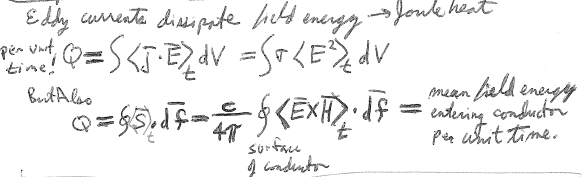 Eddy currents dissipate field energy → Joule heat
per unit time! Q = ∫⟨J̄·Ē⟩_t dV = ∫σ⟨E²⟩_t dV
But Also
Q = ∮⟨S̄⟩_t·df̄ = c/4π ∮⟨Ē×H̄⟩_t·df̄ = mean field energy entering conductor per unit time.
surface of conductor